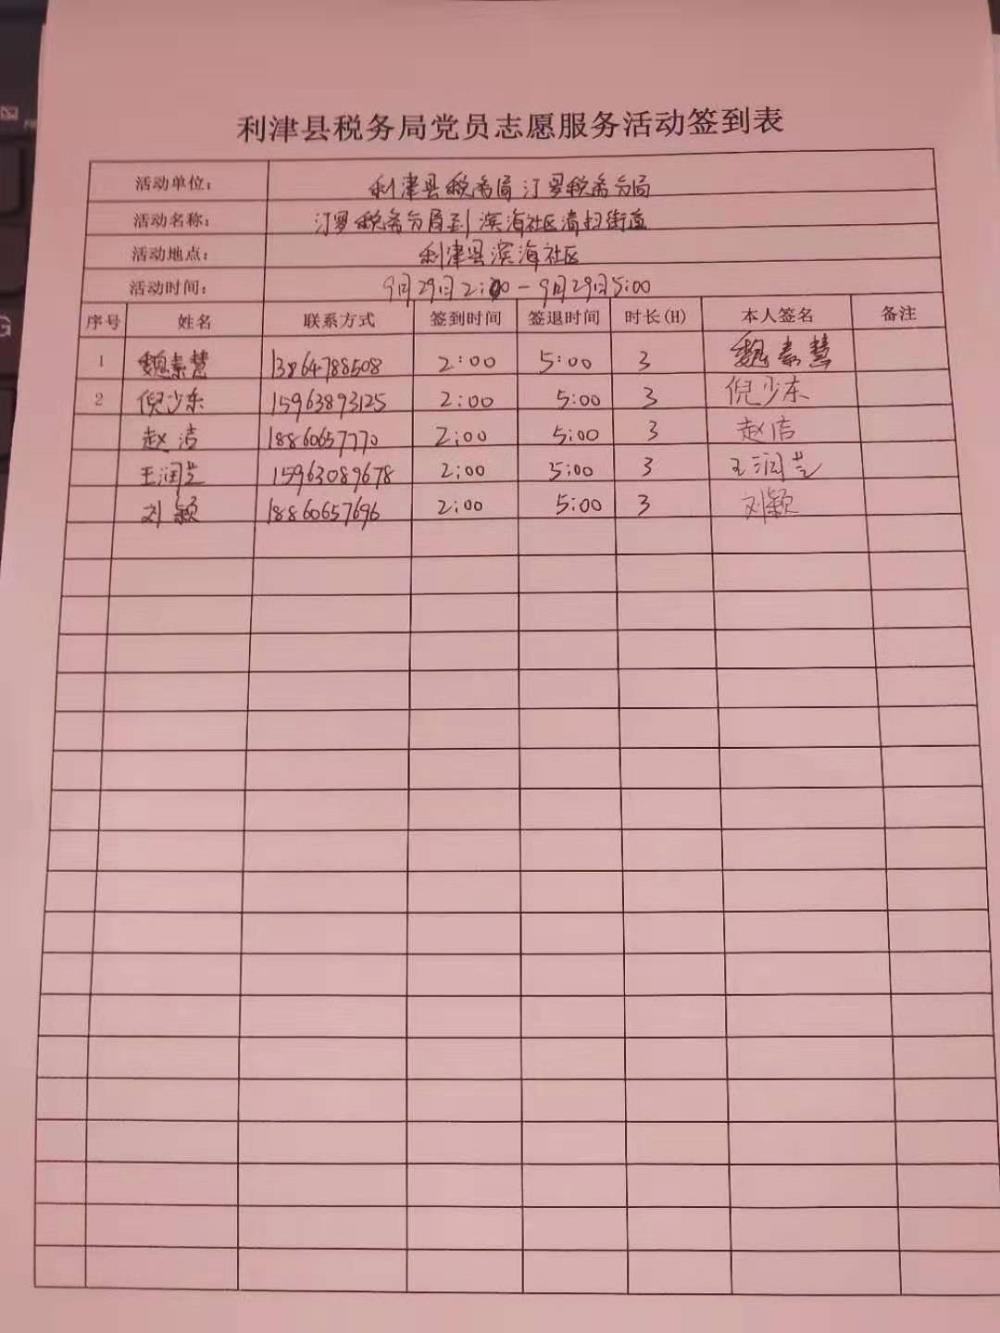 利津县税务局党员志愿服务活动签到表
活动单位: 利津县税务局汀罗税务分局
活动名称: 汀罗税务分局到滨海社区清扫街道
活动地点: 利津县滨海社区
活动时间: 9月29日2:00-9月29日5:00
序号 姓名 联系方式 签到时间 签退时间 时长(H) 本人签名 备注
1 魏素慧 13864788508 2:00 5:00 3 魏素慧
2 倪少东 15963893125 2:00 5:00 3 倪少东
赵洁 18860657770 2:00 5:00 3 赵洁
王润芝 15963089678 2:00 5:00 3 王润芝
刘颖 18860657696 2:00 5:00 3 刘颖